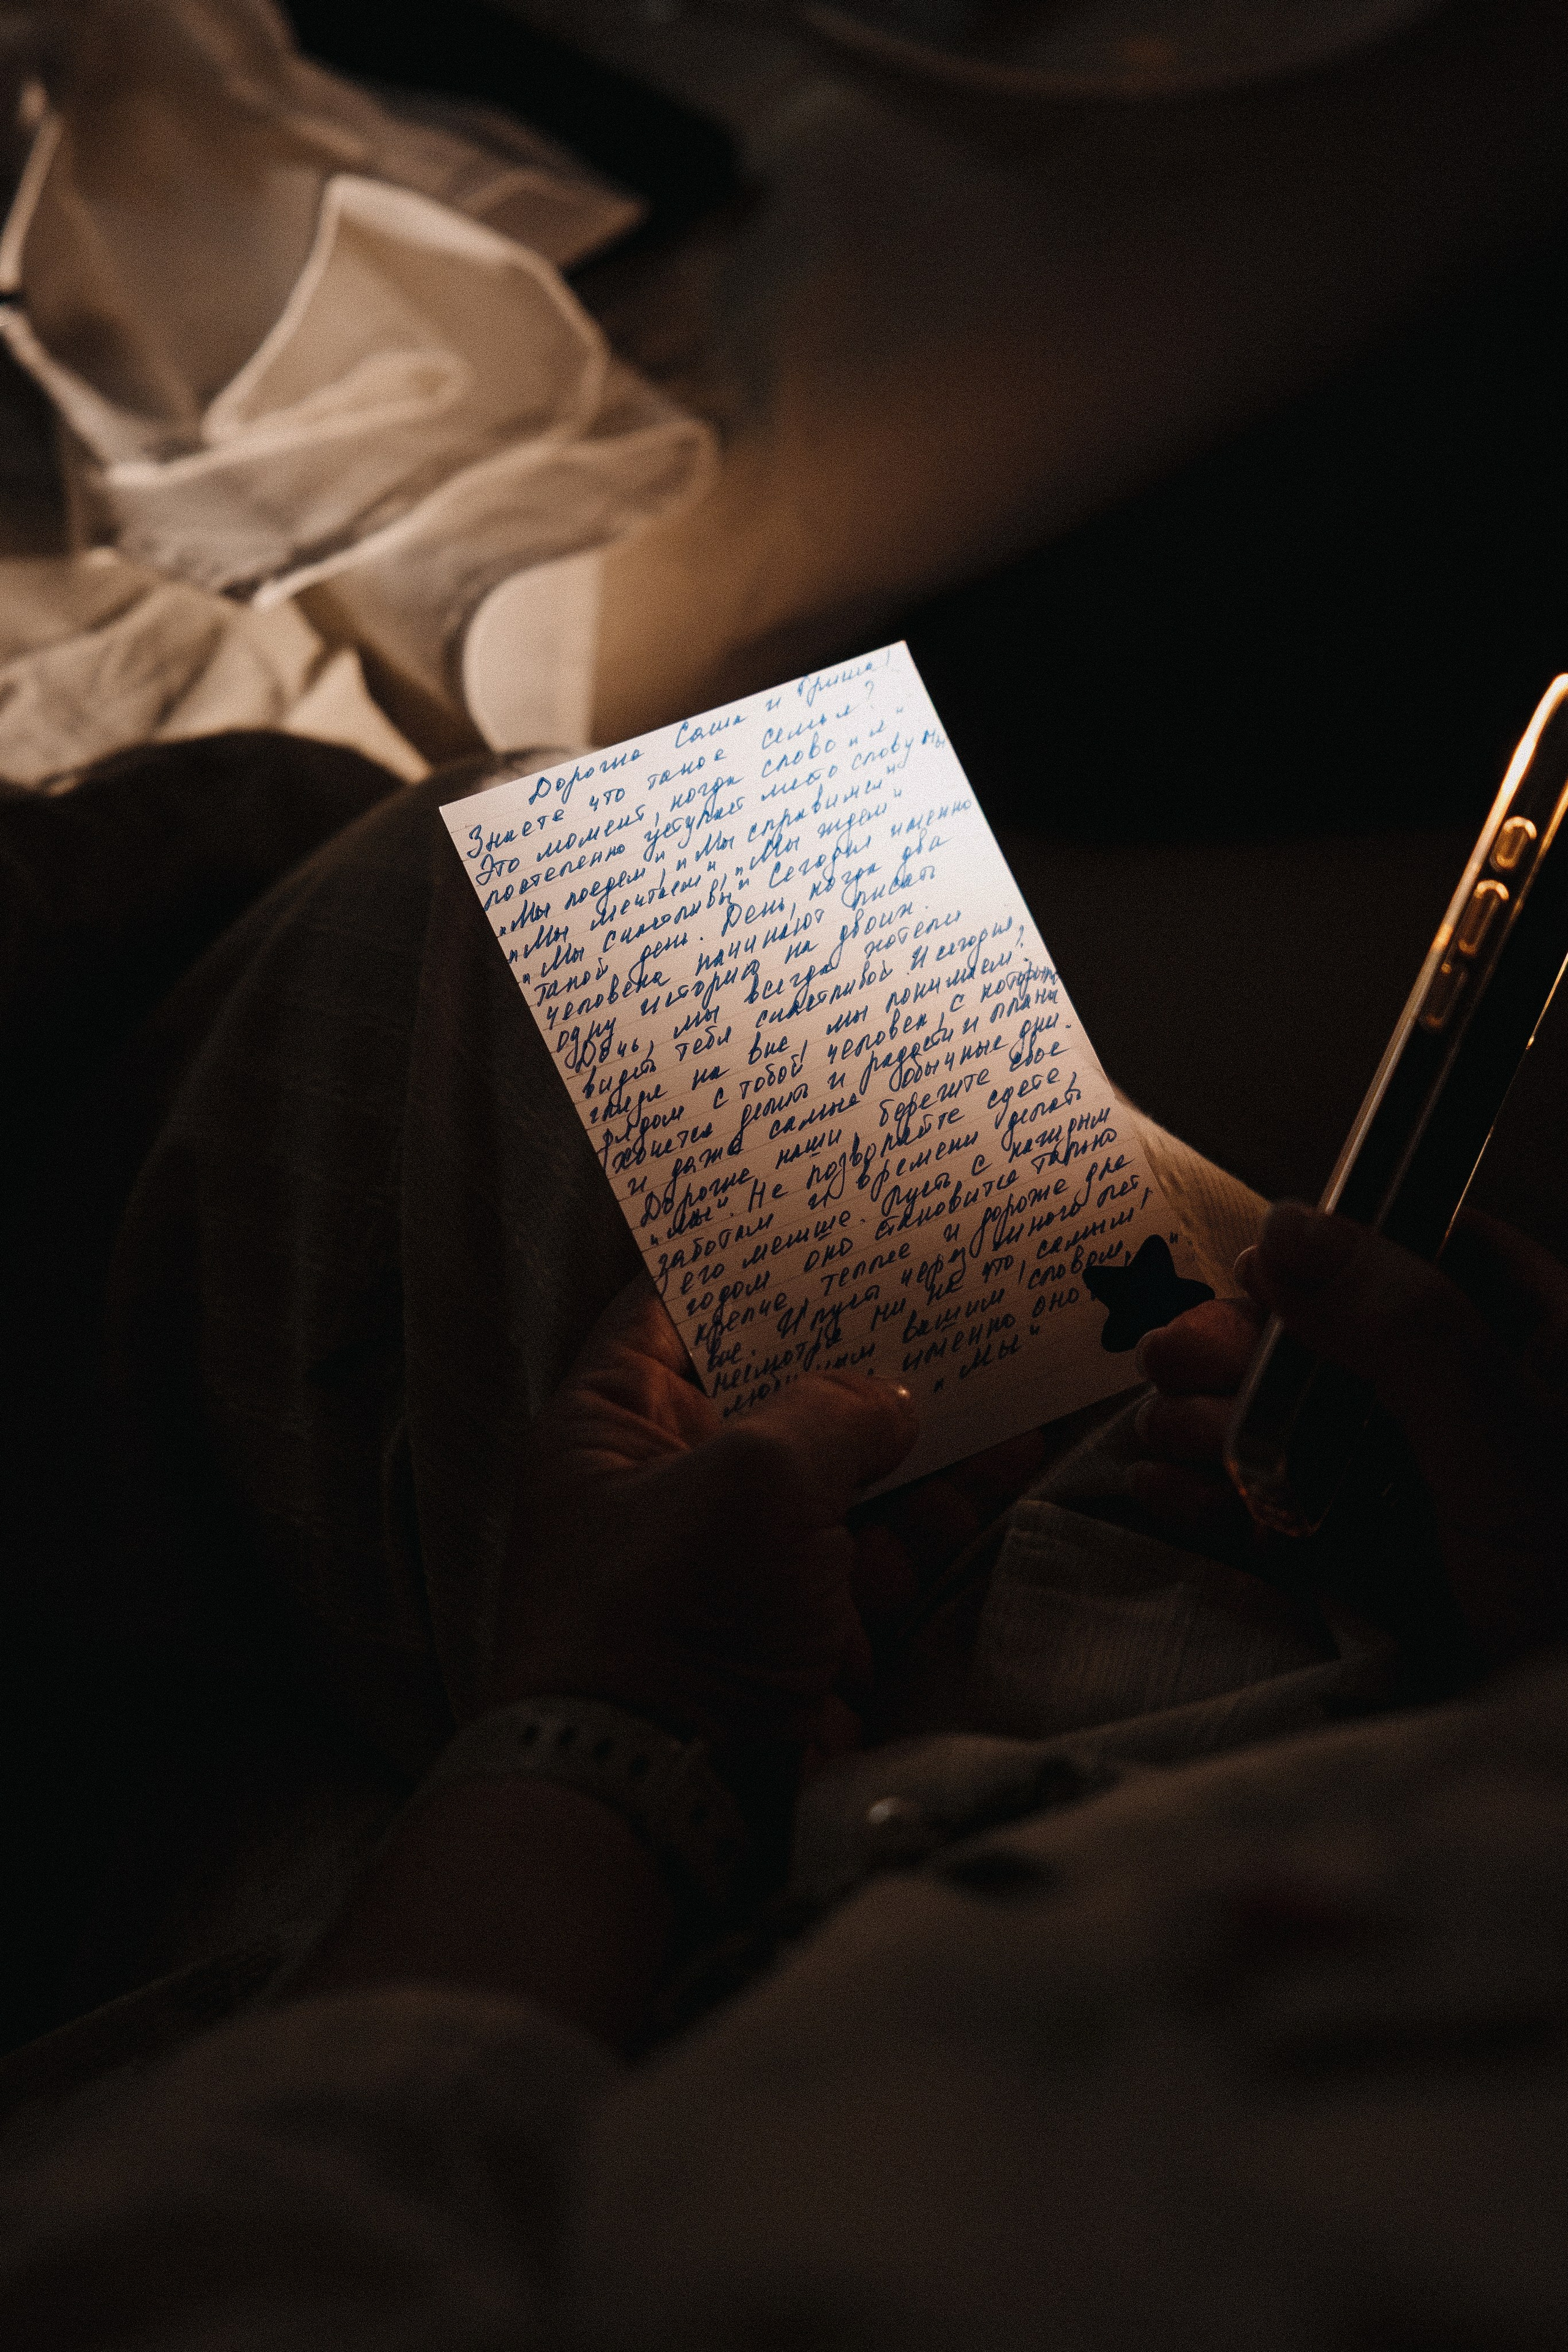 Дорогие Саша и Гриша!
Знаете что такое семья?
Это момент, когда слово „я“
постепенно уступает место слову мы
„Мы поедем“, „Мы справимся“
„Мы мечтаем“, „Мы ждем“
„Мы счастливы“ Сегодня именно
такой день. День, когда два
человека начинают писать
одну историю на двоих.
Дочь, мы всегда хотели
видеть тебя счастливой. И сегодня,
глядя на вас, мы понимаем:
рядом с тобой человек, с которым
хочется делить и радости и планы
и даже самые обычные дни.
Дорогие наши, берегите свое
„мы“. Не позволяйте суете,
заботам и времени делать
его меньше. Пусть с каждым
годом оно становится только
крепче теплее и дороже для
вас. И пусть через много лет
несмотря ни на что, самым
вашим словом,
именно оно
„Мы“